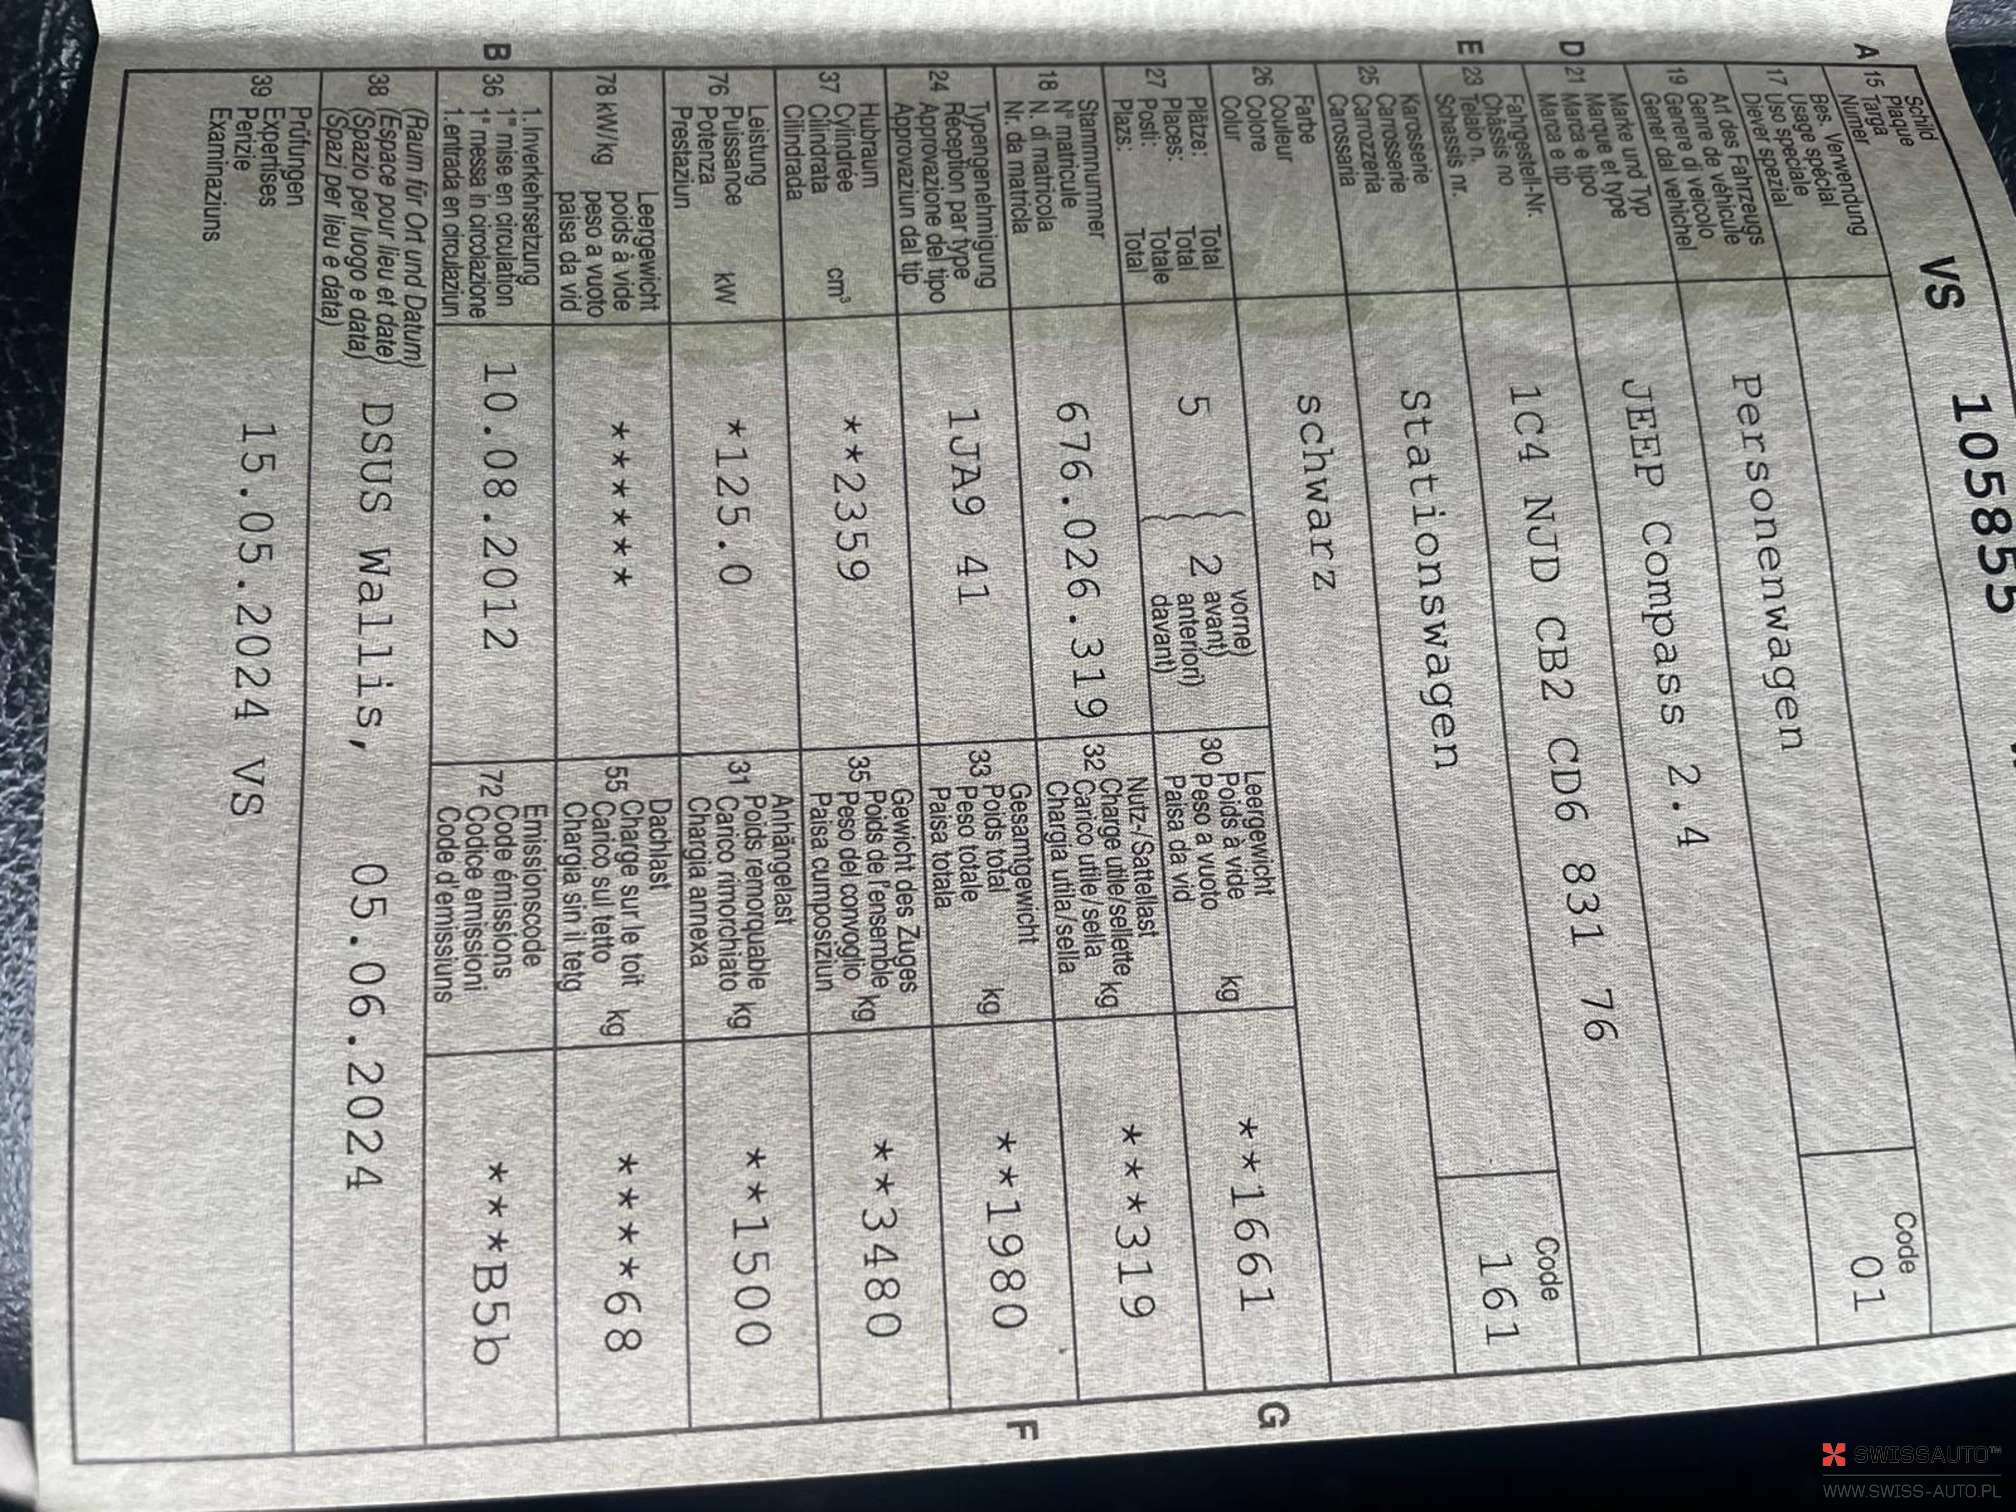 Schild
Plaque
A 15 Targa
Numer
VS 105855
Bes. Verwendung
Usage spécial
17 Uso speciale
Diever spezial
Code
01
Art des Fahrzeugs
Genre de véhicule
19 Genere di veicolo
Gener dal vehichel
Personenwagen
Marke und Typ
Marque et type
D 21 Marca e tipo
Marca e tip
JEEP Compass 2.4
Fahrgestell-Nr.
Châssis no
E 23 Telaio n.
Schassis nr.
1C4 NJD CB2 CD6 831 76
Karosserie
Carrosserie
25 Carrozzeria
Carossaria
Stationswagen
Code
161
Farbe
Couleur
26 Colore
Colur
schwarz
Plätze: Total
Places: Total
27 Posti: Totale
Plazs: Total
5
vorne)
2 avant)
anteriori)
davant)
Leergewicht
Poids à vide
30 Peso a vuoto kg
Paisa da vid
**1661
G
Stammnummer
N° matricule
18 N. di matricola
Nr. da matricla
676.026.319
Nutz-/Sattellast
Charge utile/sellette
32 Carico utile/sella kg
Chargia utila/sella
***319
Typengenehmigung
Réception par type
24 Approvazione del tipo
Approvaziun dal tip
1JA9 41
Gesamtgewicht
Poids total
33 Peso totale kg
Paisa totala
**1980
F
Hubraum
Cylindrée
37 Cilindrata cm³
Cilindrada
**2359
Gewicht des Zuges
Poids de l'ensemble
35 Peso del convoglio kg
Paisa cumposiziun
**3480
Leistung
Puissance
76 Potenza kW
Prestaziun
*125.0
Anhängelast
Poids remorquable
31 Carico rimorchiato kg
Chargia annexa
**1500
Leergewicht
poids à vide
78 kW/kg peso a vuoto
paisa da vid
******
Dachlast
Charge sur le toit
55 Carico sul tetto kg
Chargia sin il tetg
****68
1. Inverkehrsetzung
1re mise en circulation
B 36 1a messa in circolazione
1. entrada en circulaziun
10.08.2012
Emissionscode
Code émissions
72 Codice emissioni
Code d'emissiuns
***B5b
(Raum für Ort und Datum)
(Espace pour lieu et date)
38 (Spazio per luogo e data)
(Spazi per lieu e data)
DSUS Wallis, 05.06.2024
Prüfungen
Expertises
39 Perizie
Examinaziuns
15.05.2024 VS
SWISSAUTO™
WWW.SWISS-AUTO.PL